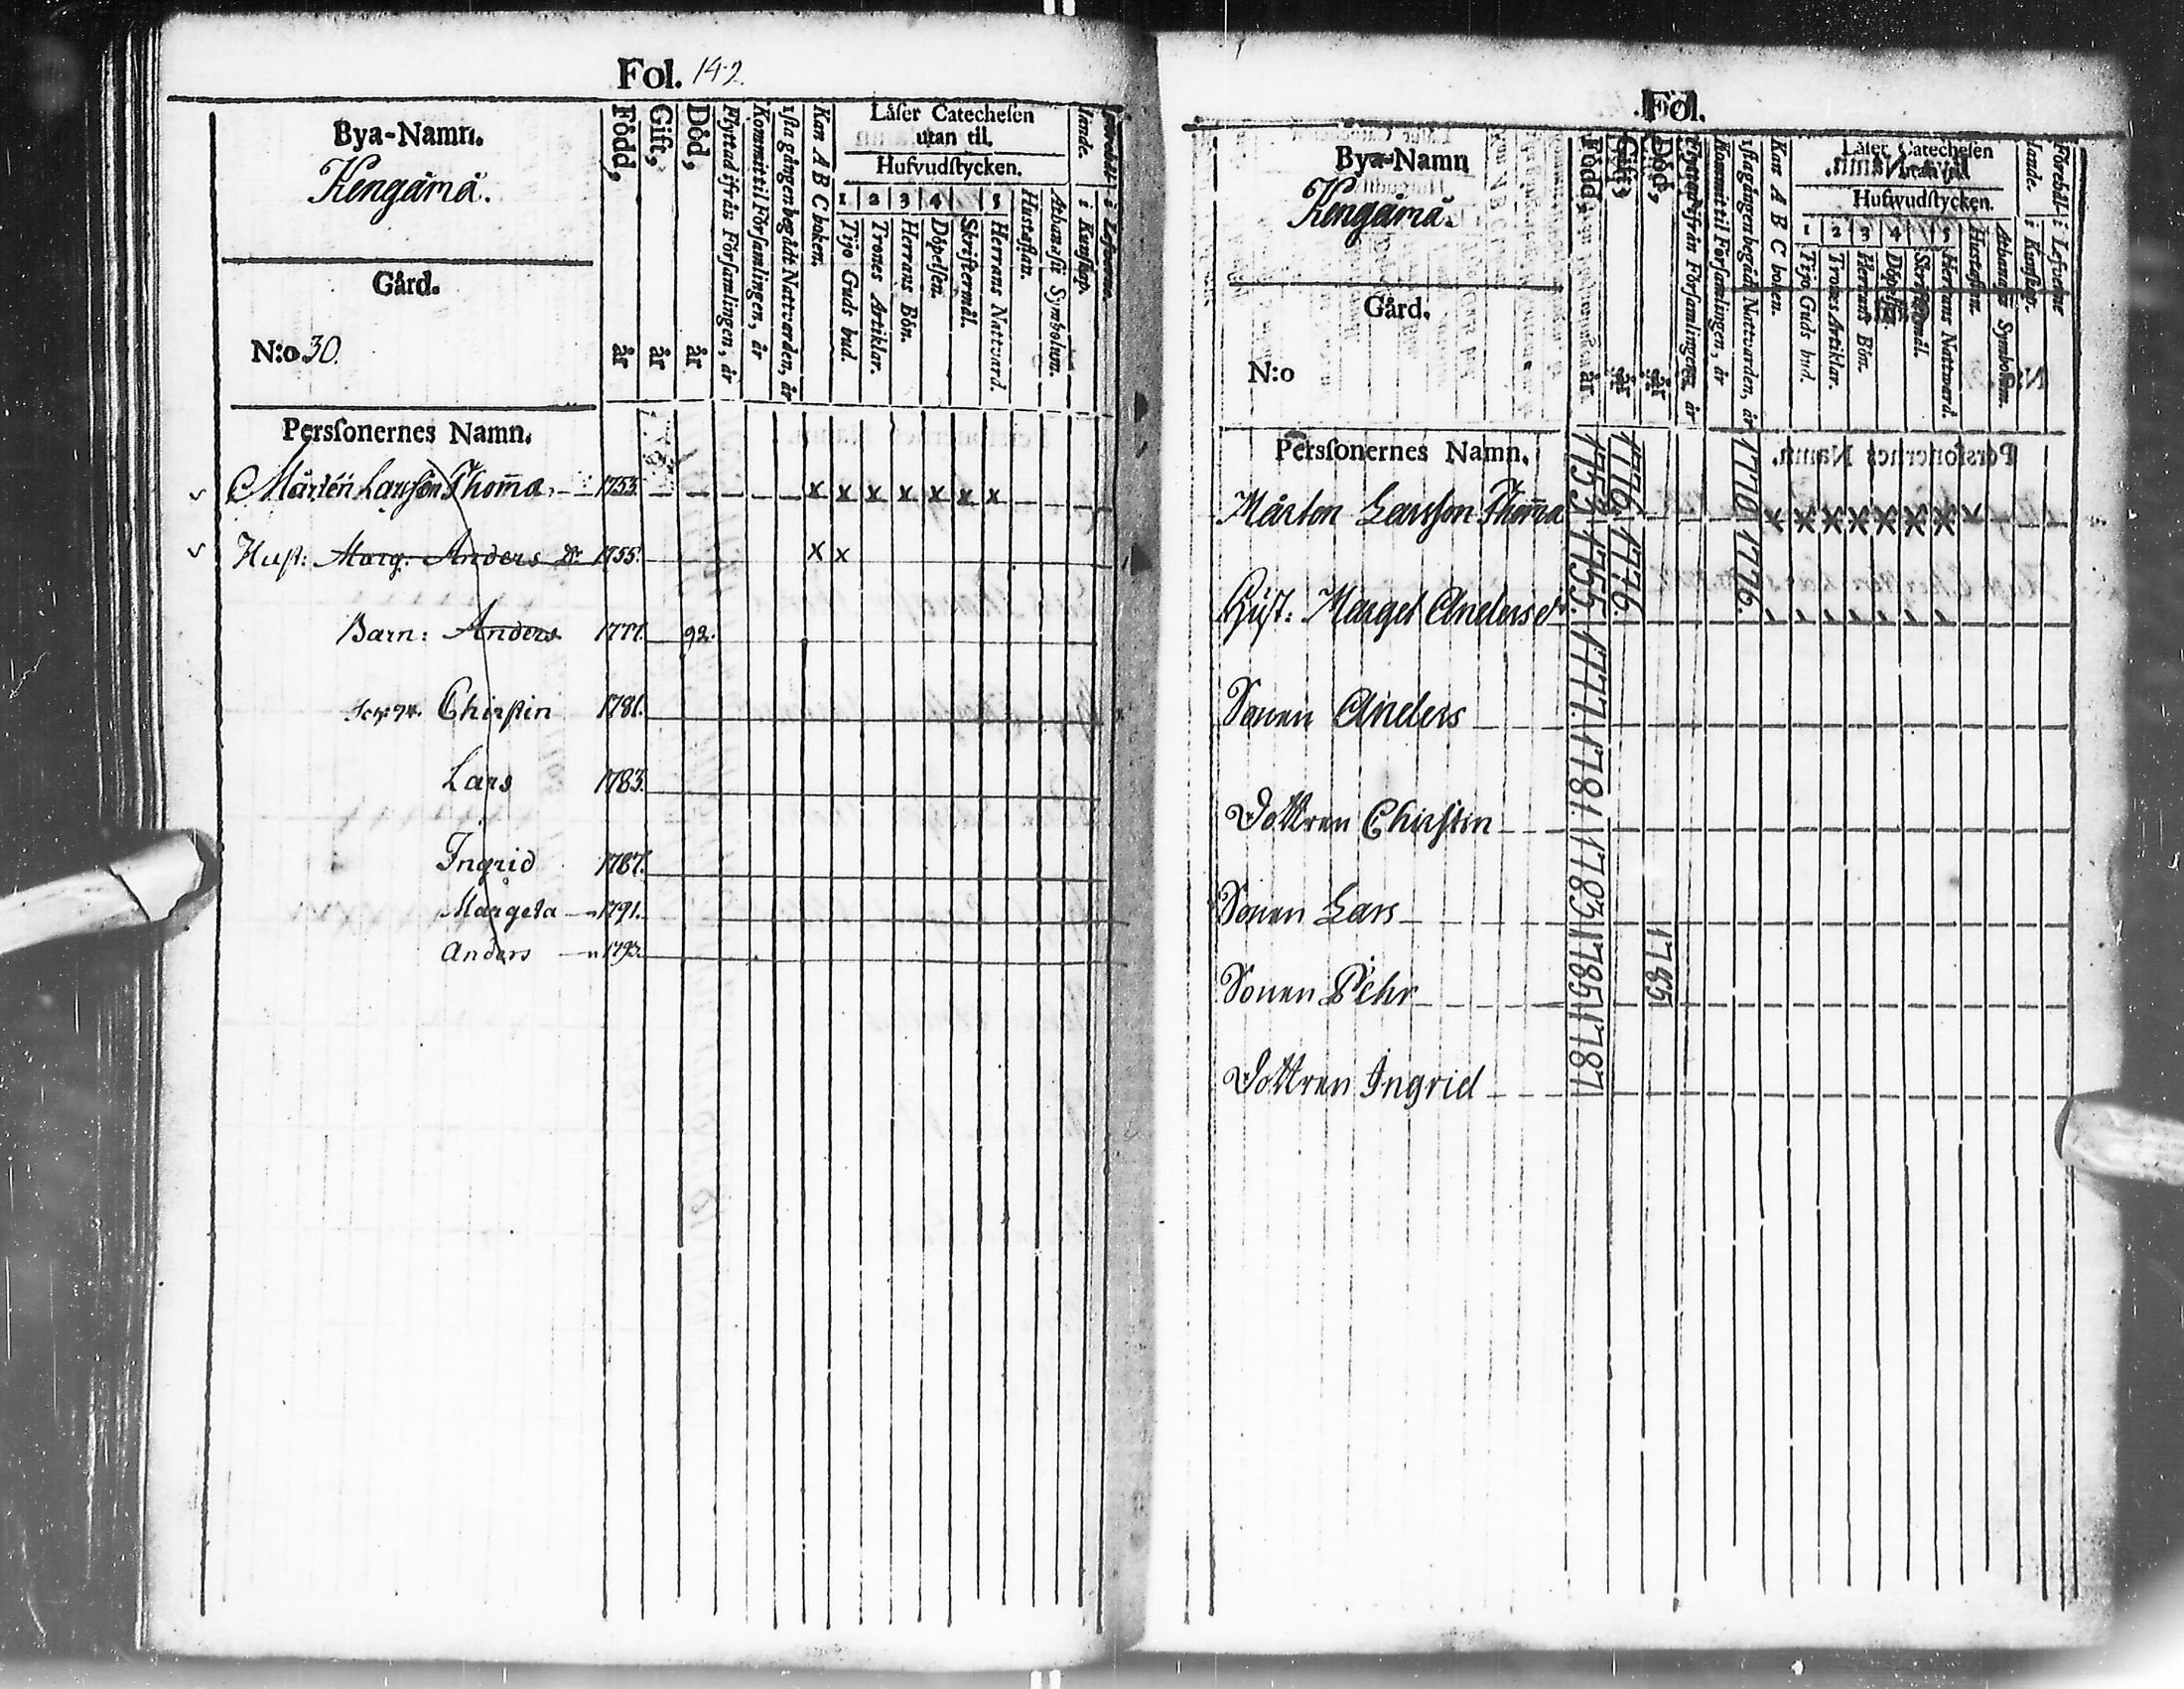 Fol. 142
Bya-Namn.
Kengämä.
Gård.
N:o 30.
Född, år
Gift, år
Död, år
Flyttad ifrån Församlingen, år
Kommit til Församlingen, år
1sta gången begådt Nattvarden, år
Kan A B C boken.
Låser Catechesen
utan til.
Hufvudstycken.
1 2 3 4 5
Tijo Guds bud.
Trones Artiklar.
Herrans Bön.
Döpelsen.
Skriftermål.
Herrans Nattvard.
Hustaflan.
Athanasii Symbolum.
i Kunskap.
Personernes Namn.
Mårten Larsson Thoma 1753. x x x x x x x
Hust: Marg. Anders Dr 1755. x x
Barn: Anders 1777. 92.
Chirstin 1781.
Lars 1783.
Ingrid 1787.
Margeta 1791.
Anders 1793.
Fol.
Bya-Namn
Kengämä.
Gård.
N:o
Född, år
Gift, år
Död, år
Flyttad ifrån Församlingen, år
Kommit til Församlingen, år
1sta gången begådt Nattvarden, år
Kan A B C boken.
Låser Catechesen
utan til.
Hufwudstycken.
1 2 3 4 5
Tijo Guds bud.
Trones Artiklar.
Herrans Bön.
Döpelsen.
Skriftermål.
Herrans Natward.
Hustaflan.
Athanasii Symbolum.
Förebållande.
i Kunskap.
i Lefverne
Personernes Namn.
Mårten Larsson Thoma 1753. 1776. 1770 x x x x x x x x
Hust: Marget Andersdr 1755. 1776. 1776.
Sonen Anders 1777.
Dottren Chirstin 1781.
Sonen Lars 1783
Sonen Pehr 1785 1785
Dottren Ingrid 1787